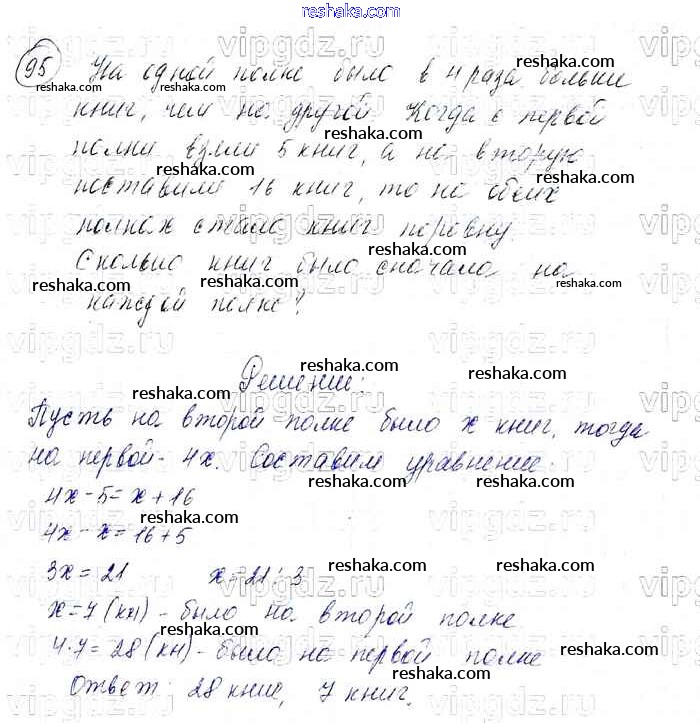 reshaka.com
95 На одной полке было в 4 раза больше
книг, чем на другой Когда с первой
полки взяли 5 книг, а на вторую
поставили 16 книг, то на обеих
полках стало книг поровну.
Сколько книг было сначала на
каждой полке?
Решение:
Пусть на второй полке было x книг, тогда
на первой - 4x. Составим уравнение.
4x-5=x+16
4x-x=16+5
3x=21 x=21:3
x=7(кн) - было на второй полке
4·7=28(кн) - было на первой полке
Ответ: 28 книг, 7 книг.
vipgdz.ru